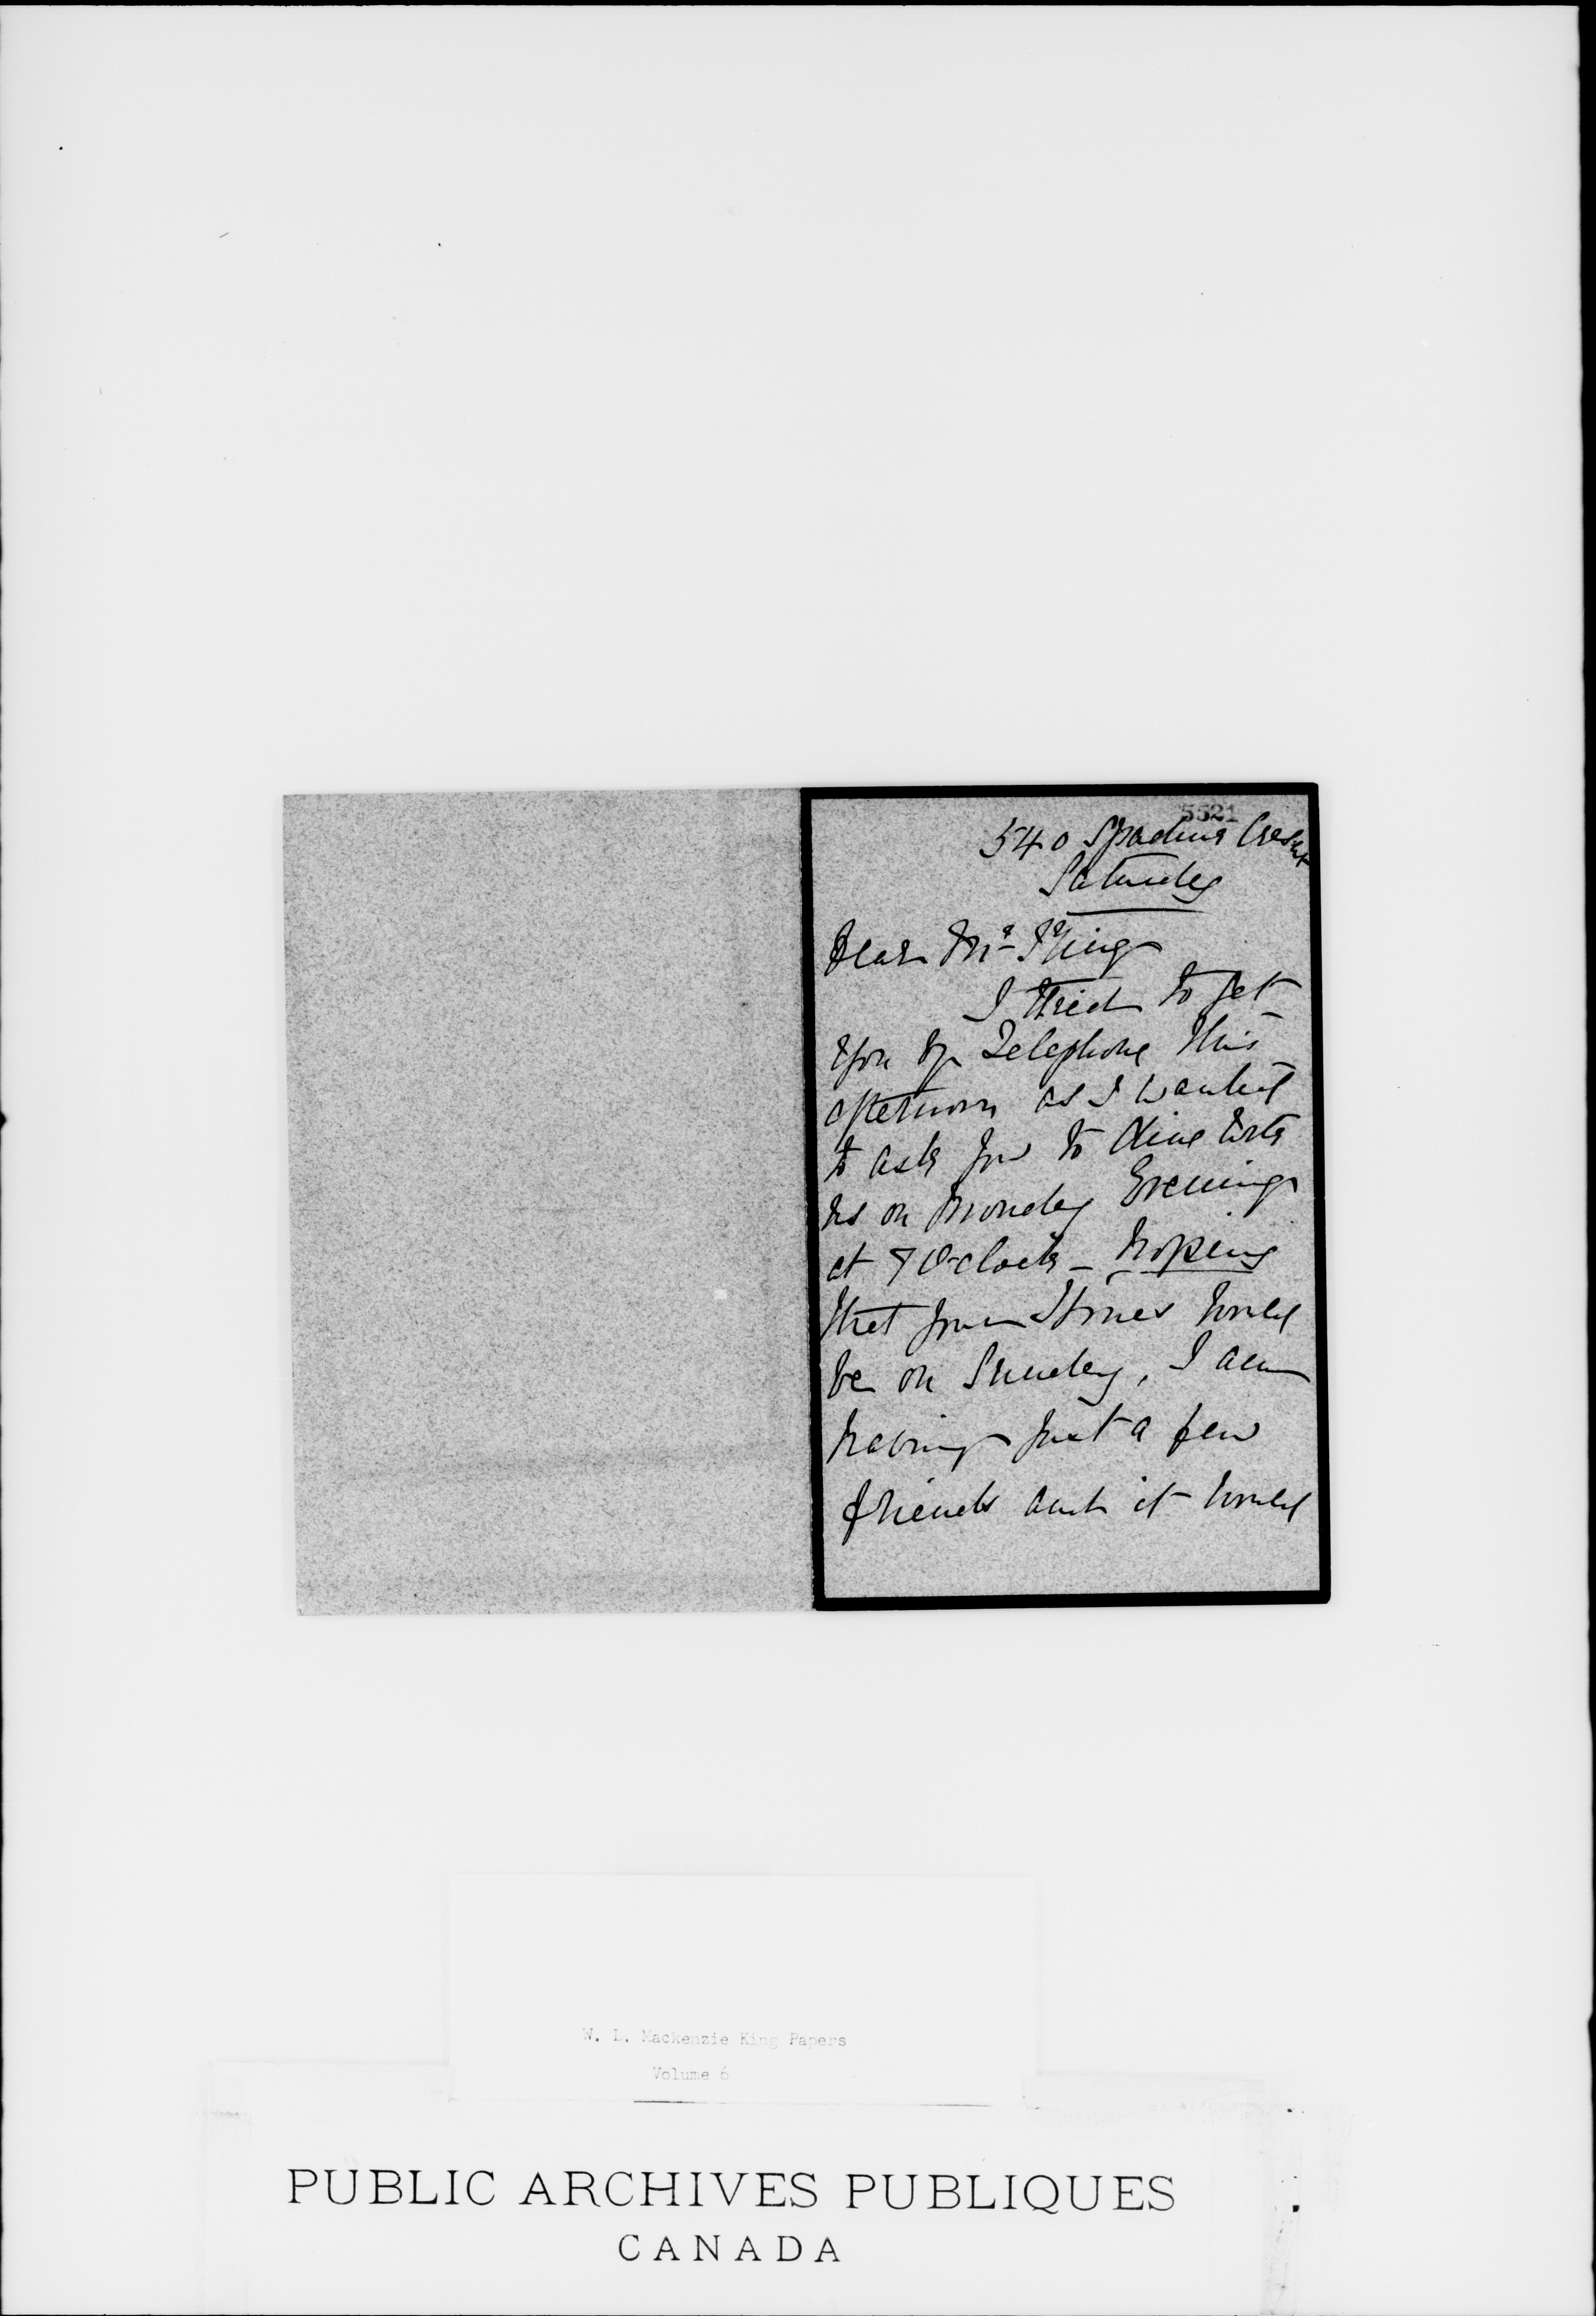 5521
540 Spadina Cresent
Saturday
Dear Mr King
I tried to get
you by Telephone this
afternoon as I wanted
to ask you to dine with
us on Monday Evening
at 7 O'clock – hoping
that your would
be on Sunday, I am
having just a few
friends and it would
W. L. Mackenzie King Papers
Volume 6
PUBLIC ARCHIVES PUBLIQUES
CANADA